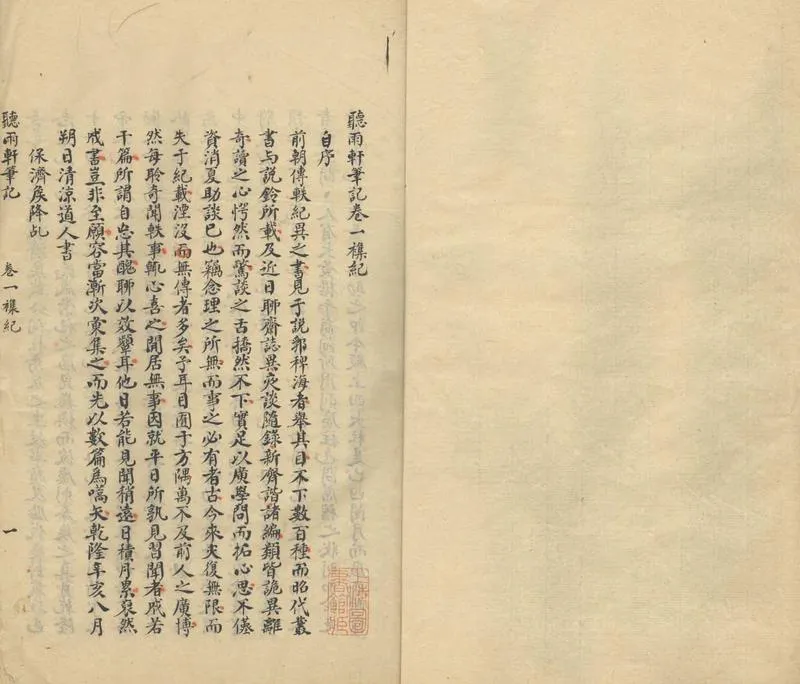 聽雨軒筆記卷一襍紀
自序
前朝傳軼紀異之書見于說郛稗海者舉其目不下數百種而昭代叢
書与說鈴所載及近日聊齋誌異夜談隨錄新齊諧諸編類皆詭異離
奇讀之心愕然而驚談之古撟然不下實足以廣學問而拓心思不僅
資消夏助談已也竊念理之所無而事之必有者古今來夫復無限而
失于紀載湮沒而無傳者多矣予耳目囿于方隅萬不及前人之廣博
然每聆奇聞軼事輒心喜之閒居無事因就平日所孰見習聞者成若
干篇所謂自忘其醜聊以效顰耳他日若能見聞稍遠日積月累裒然
成書豈非至願容當漸次彙集之而先以數篇為嚆矢乾隆年亥八月
朔日清涼道人書
保濟矦降乩
聽雨軒筆記
卷一襍紀
一